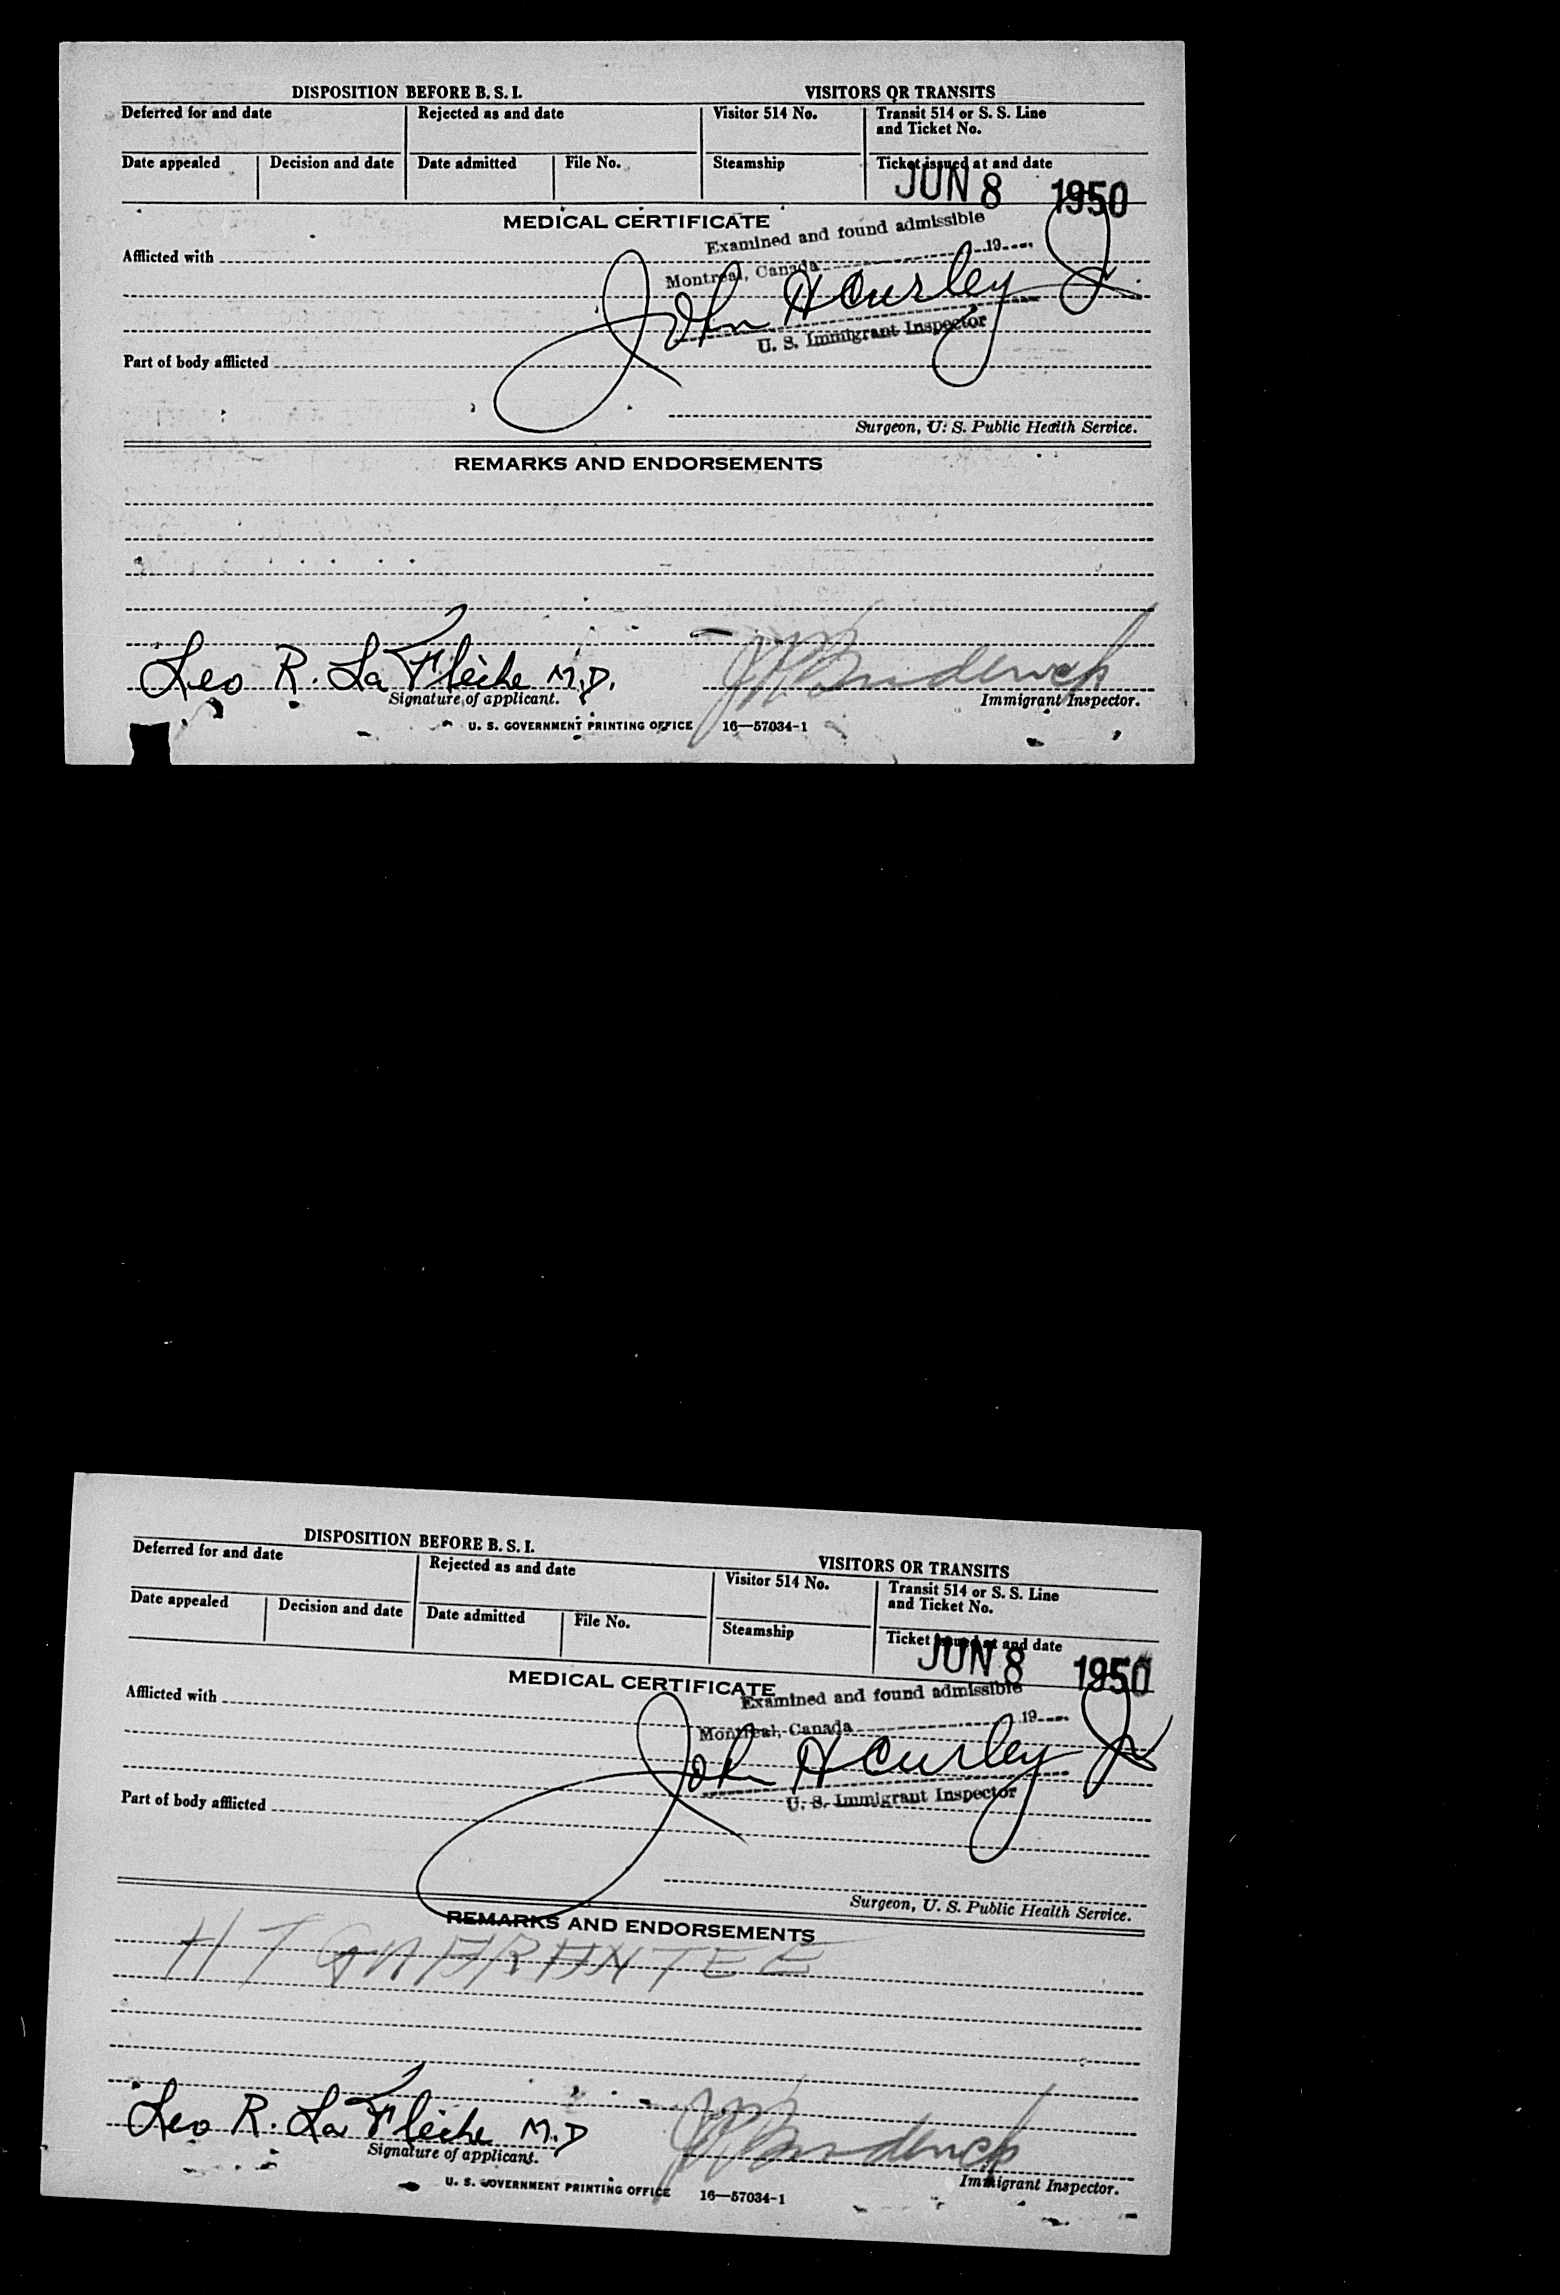 DISPOSITION BEFORE B. S. I. VISITORS OR TRANSITS
Deferred for and date Rejected as and date Visitor 514 No. Transit 514 or S. S. Line
and Ticket No.
Date appealed Decision and date Date admitted File No. Steamship Ticket issued at and date
JUN 8 1950
MEDICAL CERTIFICATE
Examined and found admissible
Afflicted with
Montreal, Canada 19
John H Curley Jr
U. S. Immigrant Inspector
Part of body afflicted
Surgeon, U. S. Public Health Service.
REMARKS AND ENDORSEMENTS
Leo R. La Flèche M.D.
Signature of applicant. Immigrant Inspector.
U. S. GOVERNMENT PRINTING OFFICE 16—57034-1
DISPOSITION BEFORE B. S. I. VISITORS OR TRANSITS
Deferred for and date Rejected as and date Visitor 514 No. Transit 514 or S. S. Line
and Ticket No.
Date appealed Decision and date Date admitted File No. Steamship Ticket issued at and date
JUN 8 1950
MEDICAL CERTIFICATE
Examined and found admissible
Afflicted with
Montreal, Canada 19
John H Curley Jr
U. S. Immigrant Inspector
Part of body afflicted
Surgeon, U. S. Public Health Service.
REMARKS AND ENDORSEMENTS
H T GUARANTEE
Leo R. La Flèche M.D
Signature of applicant. Immigrant Inspector.
U. S. GOVERNMENT PRINTING OFFICE 16—57034-1